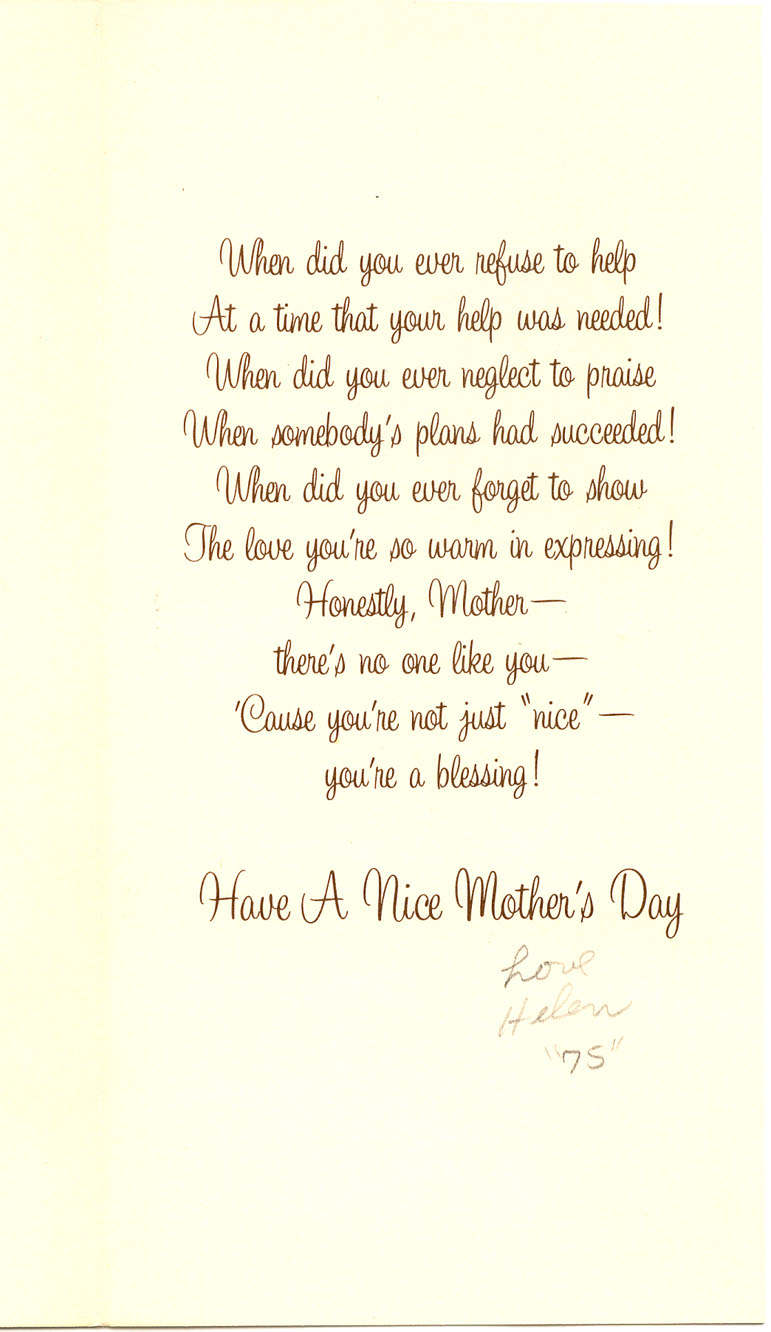 When did you ever refuse to help
At a time that your help was needed!
When did you ever neglect to praise
When somebody's plans had succeeded!
When did you ever forget to show
The love you're so warm in expressing!
Honestly, Mother—
there's no one like you—
'Cause you're not just "nice"—
you're a blessing!
Have A Nice Mother's Day
Love
Helen
"75"